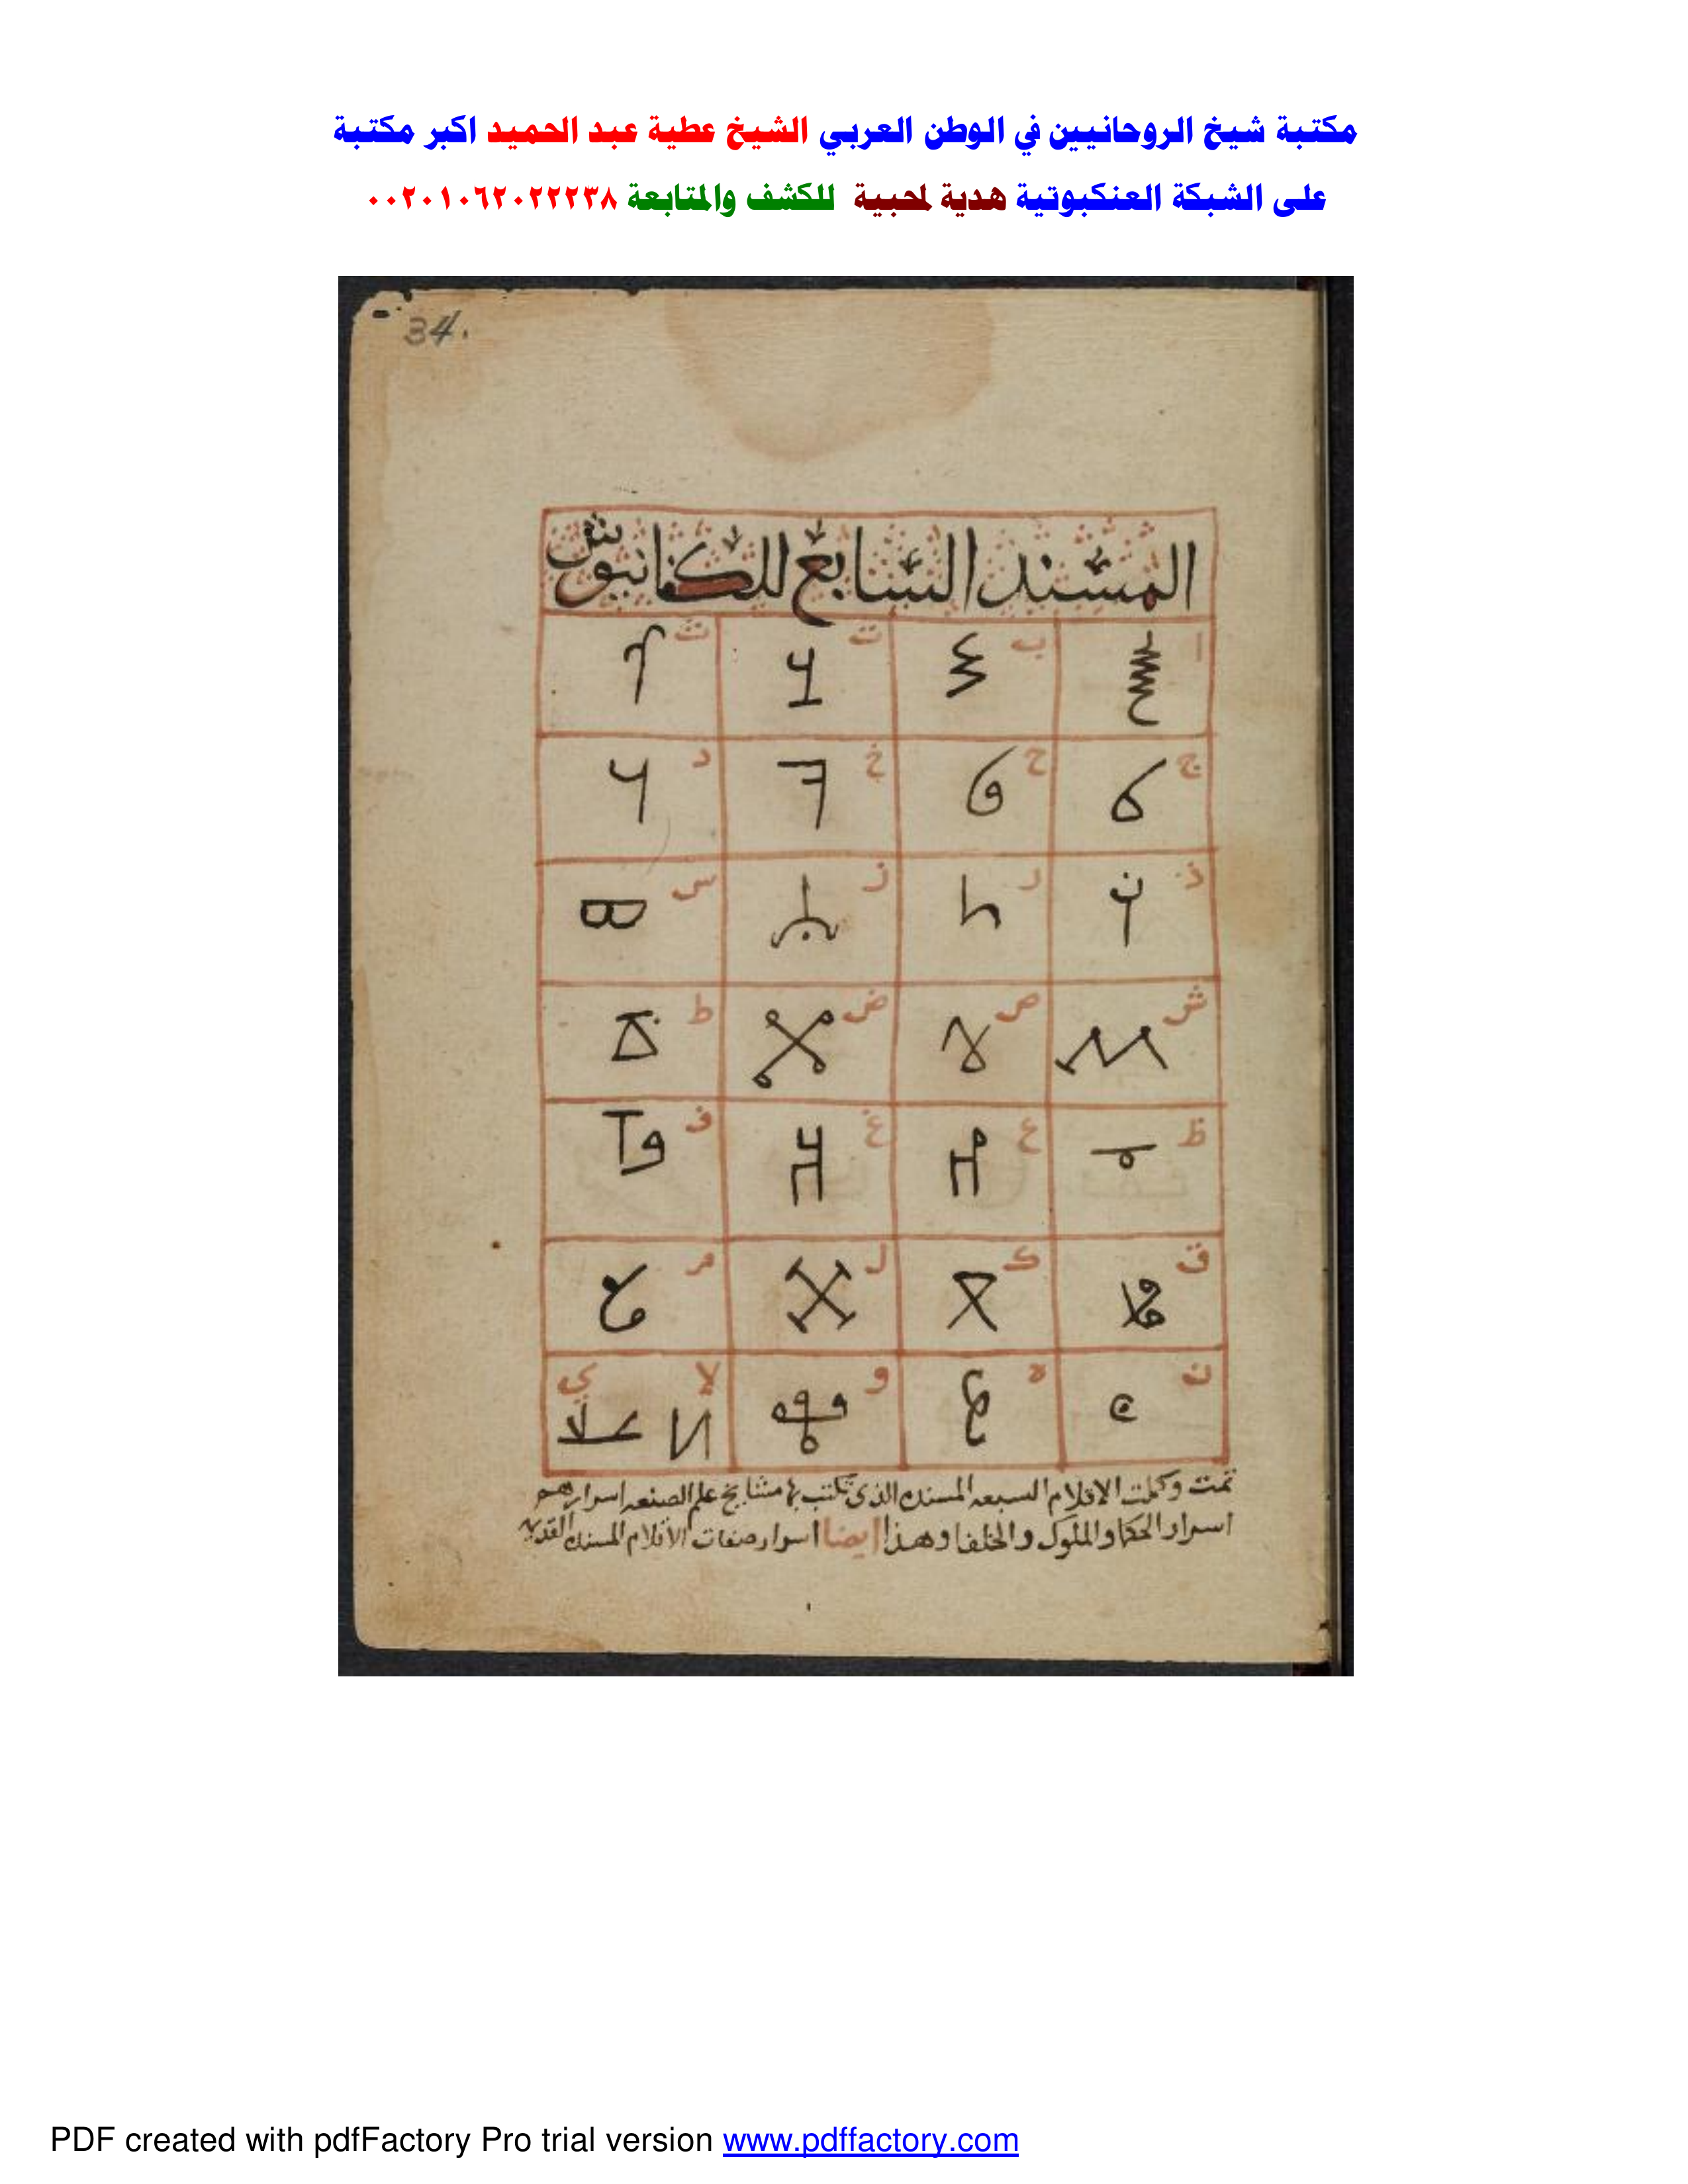 مكتبة شيخ الروحانيين في الوطن العربي الشيخ عطية عبد الحميد اكبر مكتبة
على الشبكة العنكبوتية هدية لمحبية للكشف والمتابعة ٠٠٢٠١٠٦٢٠٢٢٢٣٨
34.
المسند السابع للكفانيوش
ا ب ت ث
ج ح خ د
ذ ر ز س
ش ص ض ط
ظ ع غ ف
ق ك ل م
ن ه و لا ي
تمت وكملت الاقلام السبعه المسنده الذى تكتب بها مشايخ علم الصنعه اسرارهم
اسرار الحكما والملوك والخلفا وهذا ايضا اسرار صفات الاقلام المسنده القديمه
PDF created with pdfFactory Pro trial version www.pdffactory.com